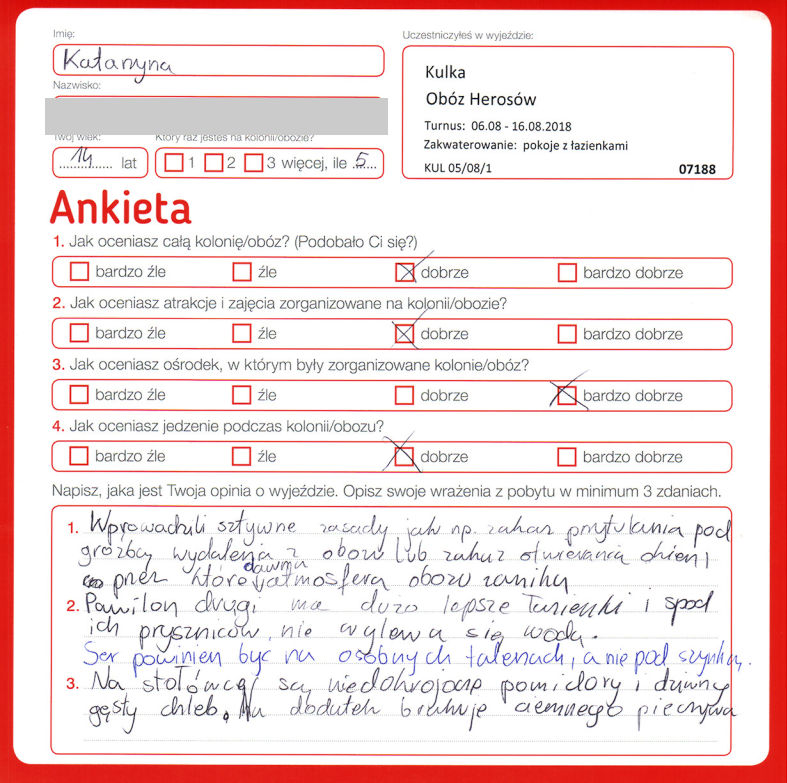 Imię:
Katarzyna
Nazwisko:
Twój wiek:
14 lat
Który raz jesteś na kolonii/obozie?
1 2 3 więcej, ile 5
Uczestniczyłeś w wyjeździe:
Kulka
Obóz Herosów
Turnus: 06.08 - 16.08.2018
Zakwaterowanie: pokoje z łazienkami
KUL 05/08/1 07188
Ankieta
1. Jak oceniasz całą kolonię/obóz? (Podobało Ci się?)
bardzo źle źle dobrze bardzo dobrze
2. Jak oceniasz atrakcje i zajęcia zorganizowane na kolonii/obozie?
bardzo źle źle dobrze bardzo dobrze
3. Jak oceniasz ośrodek, w którym były zorganizowane kolonie/obóz?
bardzo źle źle dobrze bardzo dobrze
4. Jak oceniasz jedzenie podczas kolonii/obozu?
bardzo źle źle dobrze bardzo dobrze
Napisz, jaka jest Twoja opinia o wyjeździe. Opisz swoje wrażenia z pobytu w minimum 3 zdaniach.
1. Wprowadzili sztywne zasady jak np. zakaz przytulania pod
groźbą wydalenia z obozu lub zakaz otwierania okien,
przez które dawna atmosfera obozu zanika
2. Pawilon drugi ma dużo lepsze łazienki i spod
ich pryszniców, nie wylewa się woda.
Ser powinien być na osobnych talerzach, a nie pod szynką.
3. Na stołówce są niedokrojone pomidory i dziwny
gęsty chleb. Na dodatek brakuje ciemnego pieczywa